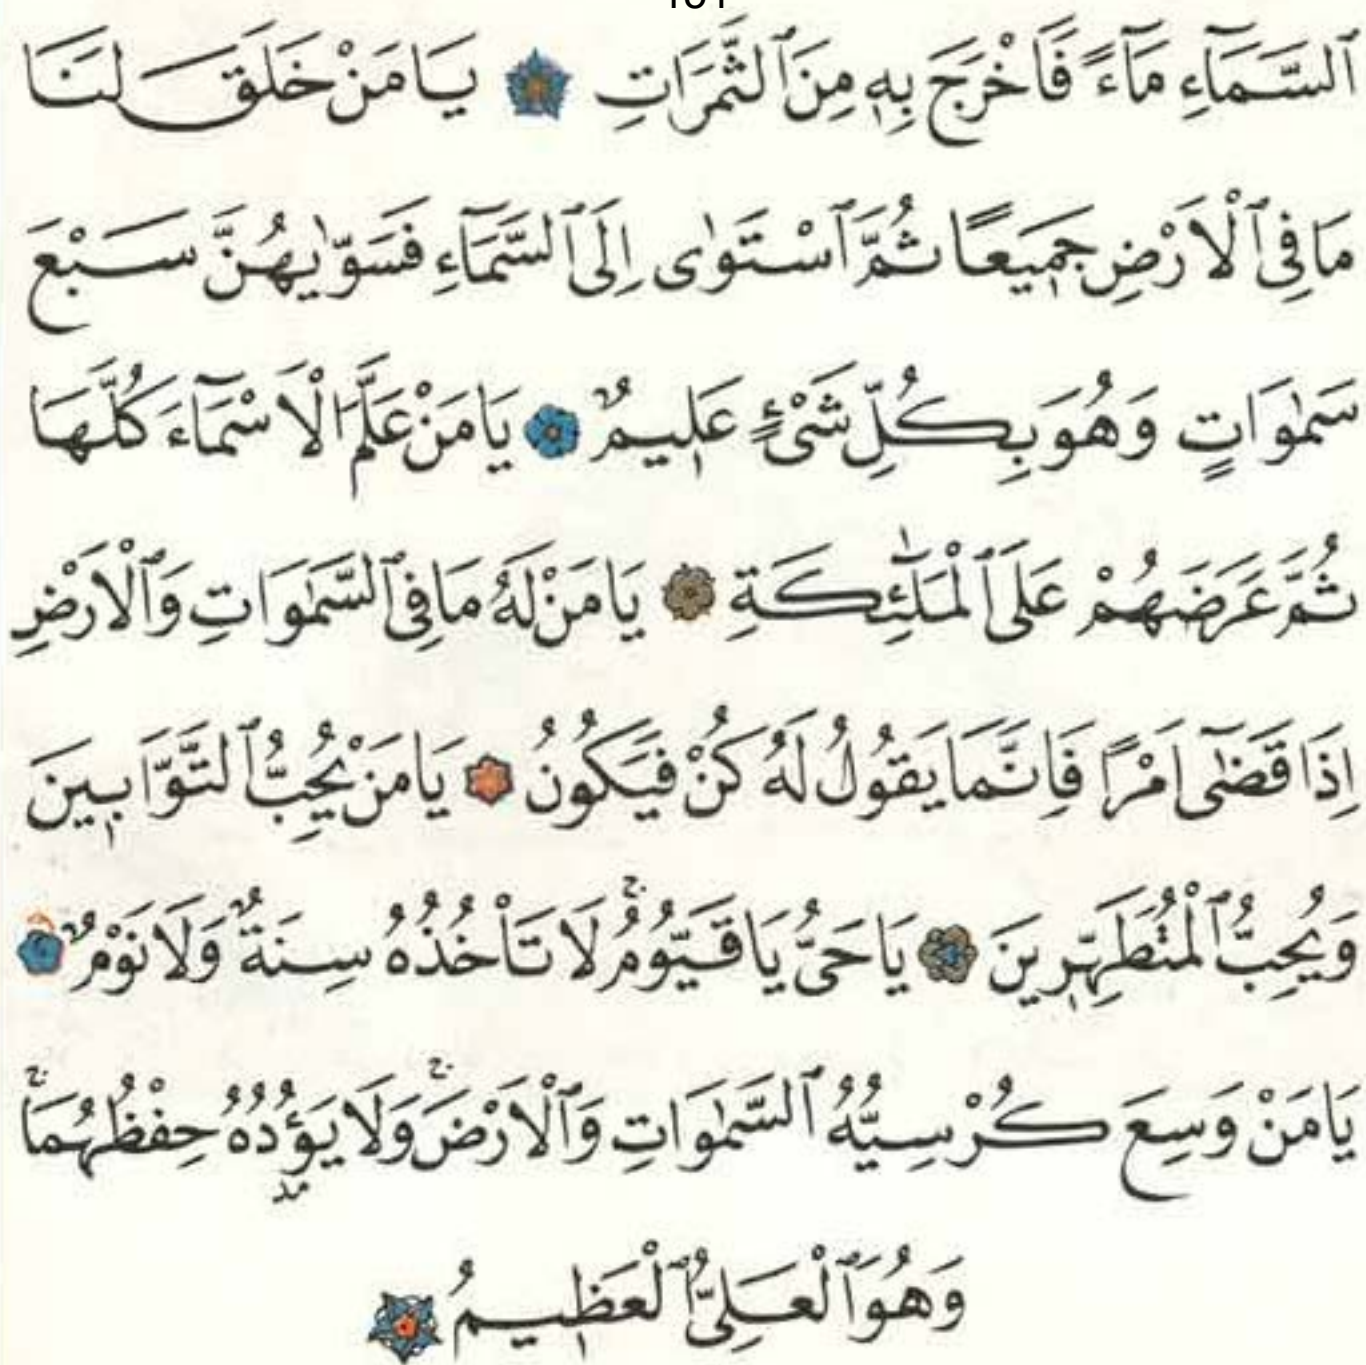 اَلسَّمَٓاءِ مَٓاءً فَاَخْرَجَ بِهٖ مِنَ الثَّمَرَاتِ يَا مَنْ خَلَقَ لَنَا
مَا فِى الْاَرْضِ جَمٖيعًا ثُمَّ اسْتَوٰى اِلَى السَّمَٓاءِ فَسَوّٰيهُنَّ سَبْعَ
سَمٰوَاتٍ وَهُوَ بِكُلِّ شَىْءٍ عَلٖيمٌ يَا مَنْ عَلَّمَ الْاَسْمَٓاءَ كُلَّهَا
ثُمَّ عَرَضَهُمْ عَلَى الْمَلٰٓئِكَةِ يَا مَنْ لَهُ مَا فِى السَّمٰوَاتِ وَالْاَرْضِ
اِذَا قَضٰٓى اَمْرًا فَاِنَّمَا يَقُولُ لَهُ كُنْ فَيَكُونُ يَا مَنْ يُحِبُّ التَّوَّابٖينَ
وَيُحِبُّ الْمُتَطَهِّرٖينَ يَا حَىُّ يَا قَيُّومُ لَا تَاْخُذُهُ سِنَةٌ وَلَا نَوْمٌ
يَا مَنْ وَسِعَ كُرْسِيُّهُ السَّمٰوَاتِ وَالْاَرْضَ وَلَا يَؤُدُهُ حِفْظُهُمَا
وَهُوَ الْعَلِىُّ الْعَظٖيمُ